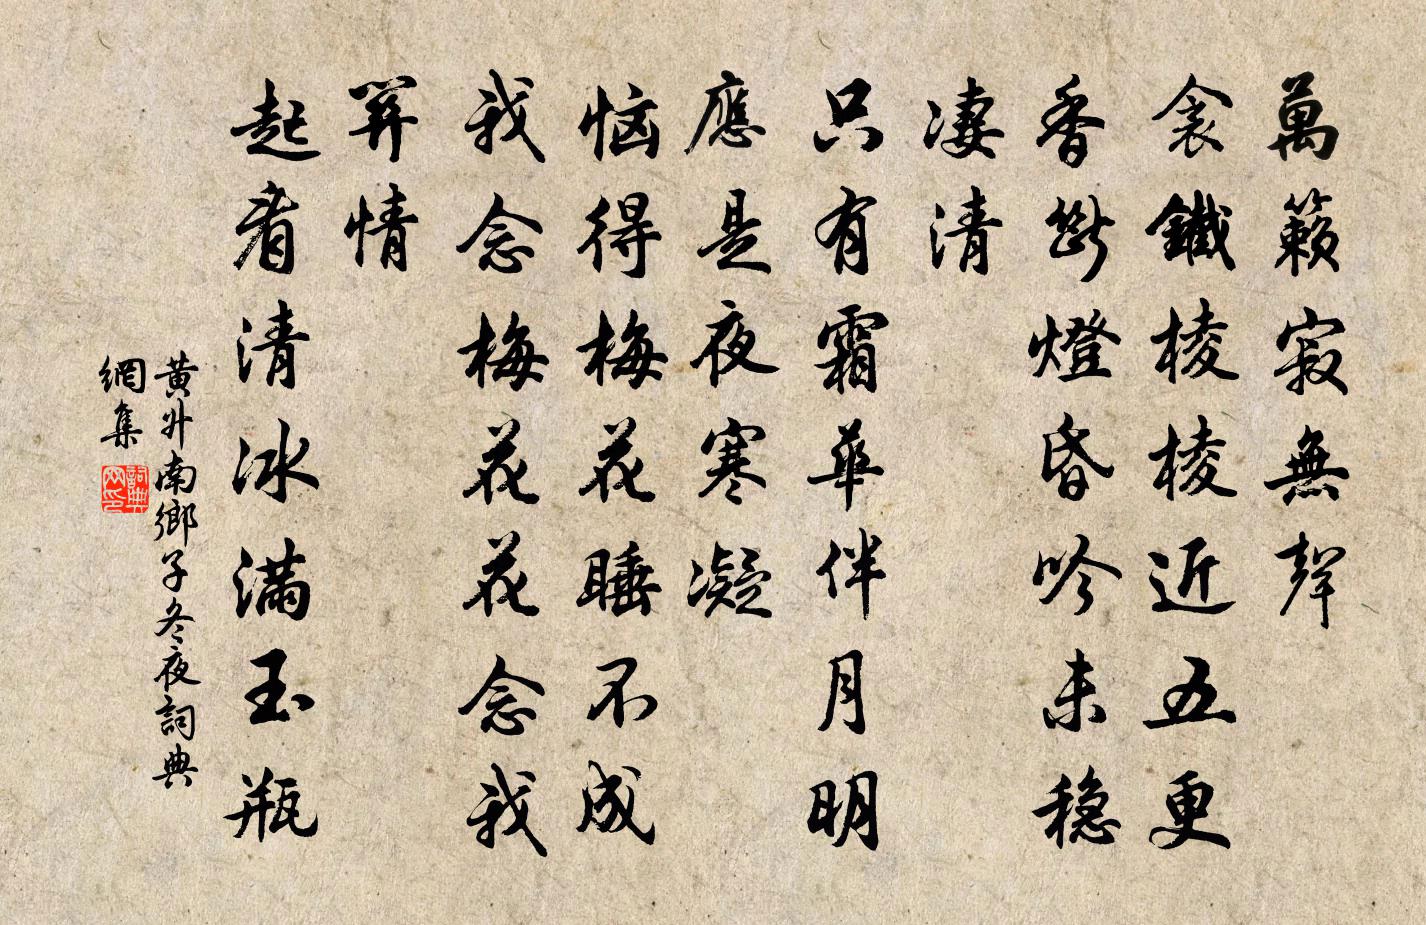 萬籟寂無聲
衾鐵棱棱近五更
香斷燈昏吟未穩
凄清
只有霜華伴月明
應是夜寒凝
惱得梅花睡不成
我念梅花花念我
關情
起看清冰滿玉瓶
黃升南鄉子冬夜詞典
網集
詞典网印